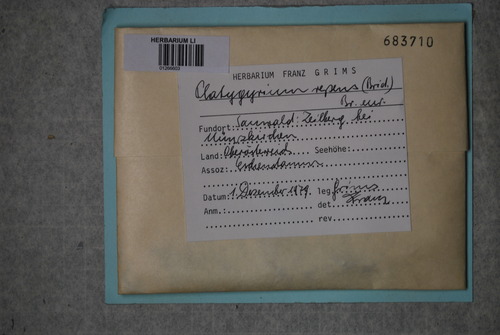 HERBARIUM LI
683710
HERBARIUM FRANZ GRIMS
Platygyrium repens (Brid.)
Br. eur.
Fundort: Sauwald: Zeilberg bei
Münzkirchen
Land: Oberösterreich Seehöhe:
Assoz: Eschenstamm
Datum: 1. Dezember 1979 leg. Grims
Anm.: det. Franz
rev.